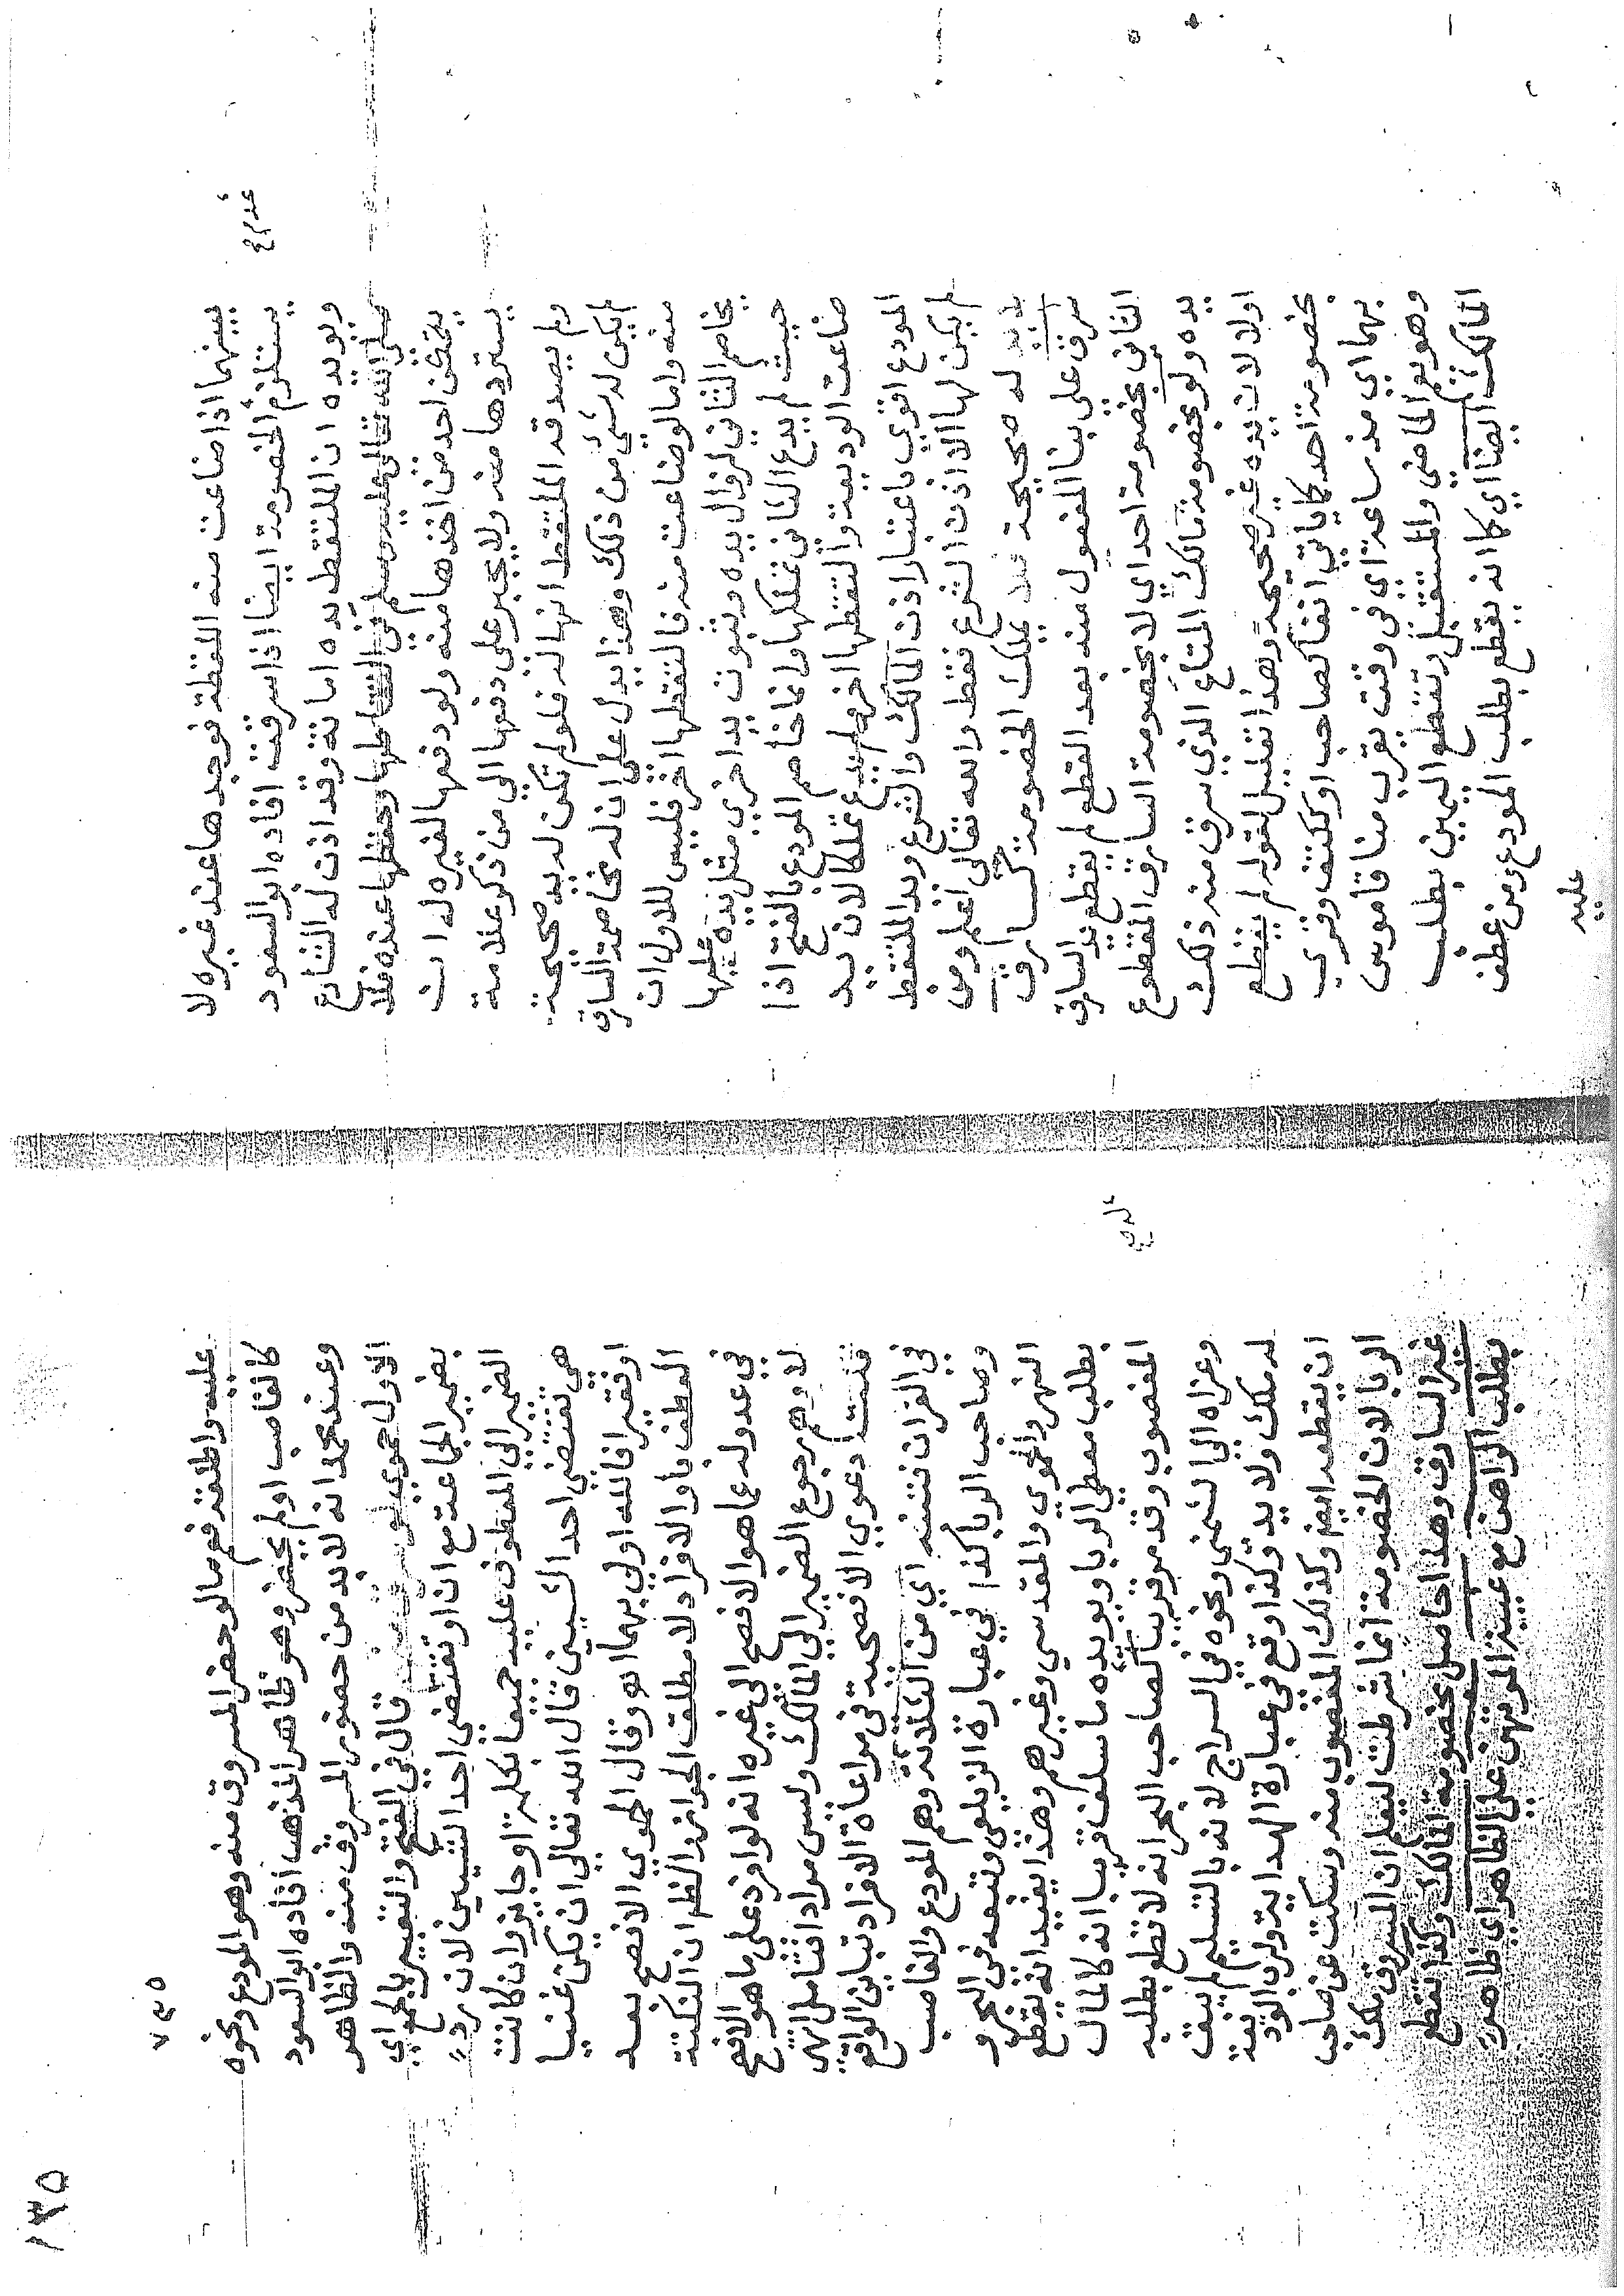 بينهما اذا ضاعت منه اللقطة فوجدها عند غيره لا
يستلزم الخصومة ايضا اذا سرقت افاده ابو السعود
ويويده ان الملتقط يده امانة وقد اذن له الشارع
صلى الله تعالى عليه وسلم في التقاطها وحفظها عنده فلا
يتمكن احد من اخذها منه ولو دفعها لغيره له ان
يستردها منه ولا يجبر على دفعها الى من ذكر علامة
ولم يصدقه الملتقط انها له فلو لم تكن له يد صحيحة
لم يكن له شئ من ذلك وهذا يدل على ان له مخاصمة السارق
منه واما لو ضاعت منه فالتقطها اخر فليس للاول ان
يخاصم الثاني لزوال يده وثبوت يد اخرى مثل يده عليها
حيث لم يدع الثاني تملكها وانما خاصم المودع بالفتح اذا
ضاعت الوديعة والتقطها اخر ولم يدع تملكا لان يد
المودع اقوى باعتبار اذن المالك والشرع ويد الملتقط
لم يكن لها الا اذن الشرع فقط والله تعالى اعلم ومن
لا يد له صحيحة فلا يملك الخصومة كسارق
سرق على بنا المفعول منه بعد القطع لم يقطع يد السارق
الثاني بخصومة احد اي لا بخصومة السارق المقطوع
يده ولو بخصومة مالك المتاع الذي سرق منه ذلك
اولا لان يده غير صحيحة وهذا تعليل لقوله لم يقطع
بخصومة احد كما ياتي انفا كصاحب اوككتف وقرئ
بهما اي مذ ساعة اي في وقت يقرب منا قاموس
وهو يعم الماضي والمستقبل وتقطع اليمين بطلب
المالك ايضا اي كما انه يقطع بطلب المودع ومن عطف
عليه
١٣٥
عليه واطلقه فعم ما لو حضر المسروق منه وهو المودع ونحوه
كالغاصب او لم يحضر وهو ظاهر المذهب افاده ابو السعود
وعند محمد انه لا بد من حضور المسروق منه والظاهر
الاول حموي قال في الفتح والتعبير بالجمع اي
بضمير الجماعة مع ان او تقتضي احد الشيين لان رد
الضمير الى المعطوف عليه جميعا بكلمة او جايز وان كانت
هي تقتضي احد الشيين قال الله تعالى ان يكن غنيا
او فقيرا فالله اولى بهما اهو وقال الحموي الافصح بعد
العطف باو الافراد لا مطلق الجواز انظر ان النكتة
في عدوله عما هو الافصح الى غيره انه لو افرد على ما هو الافصح
لاوهم رجوع الضمير الى المالك وليس مرادا فتامل انتهى
قلت دعوى الافصحية في مراعاة الافراد تباين الواقع
في القران فتنبه اي من الثلاثة وهم المودع والغاصب
وصاحب الربا كذا في عبارة الزيلعي وتبعه في البحر و
النهر والحموي والمقدسي وغيرهم وهذا يفيد انه يقطع
بطلب معطي الربا ويويده ما سلف قريبا انه كالمال
المغصوب وقد مر قريبا لصاحب البحر انه لا تقطع بطلبه
وعزاه الى الشمني ونحوه في السراج لانه بالتسليم لم يبق
له ملك ولا يد وكذا وقع في عبارة الهداية ولرب الوديعة
ان يقطعه ايض وكذلك المغصوب منه وسكت عن صاحب
الربا لان الخصومة انما شرطت ليعلم ان المسروق ملك
غير السارق وهذا حاصل بخصومة المالك وكذا تقطع
بطلب الراهن مع غيبة المرتهن على الظاهر اي ظاهر